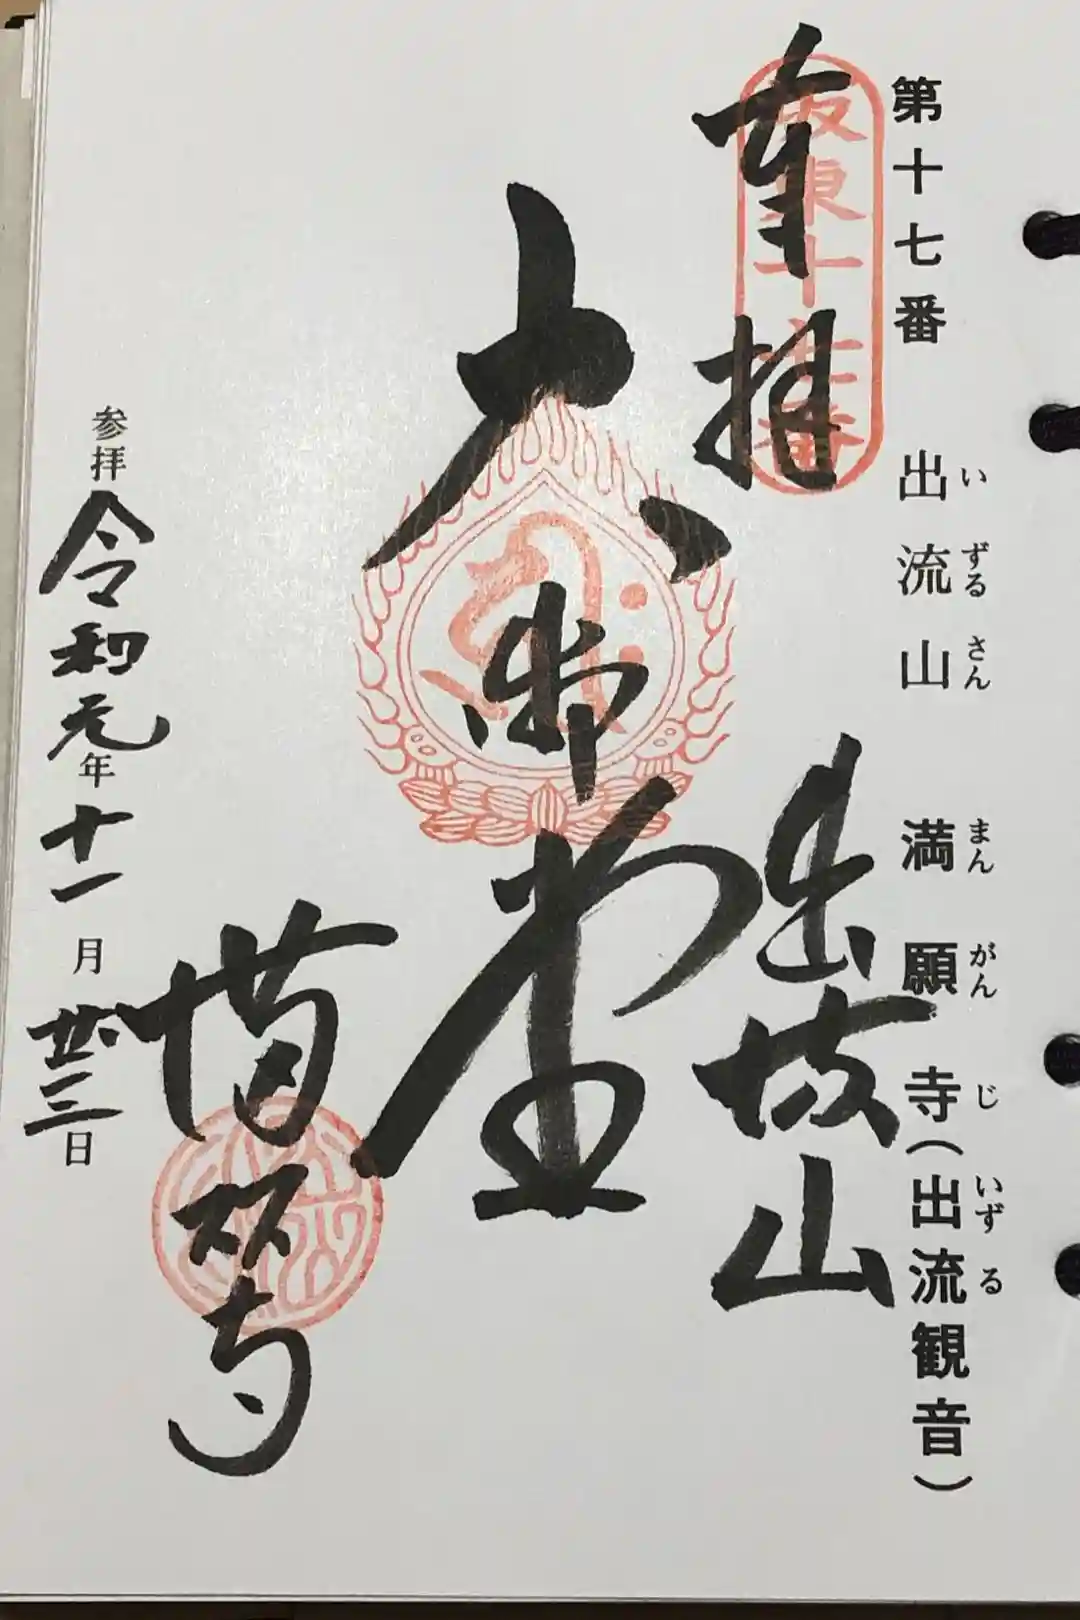 第十七番 出流山 満願寺(出流観音)
いずるさん まんがんじ いずる
坂東十七番
奉拝
出流山
大悲堂
満願寺
参拝 令和元年十一月廿三日